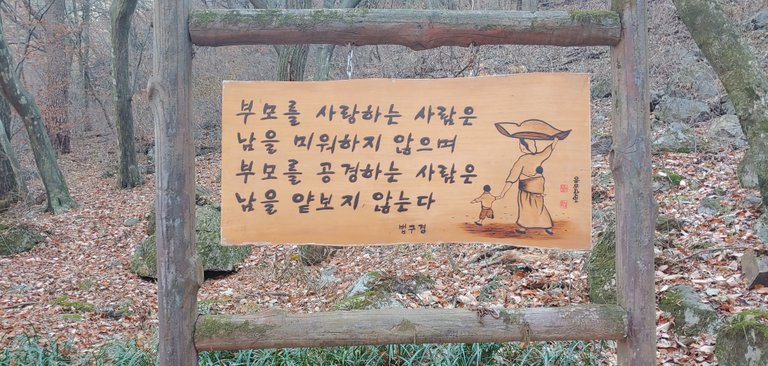 부모를 사랑하는 사람은
남을 미워하지 않으며
부모를 공경하는 사람은
남을 얕보지 않는다
범구경